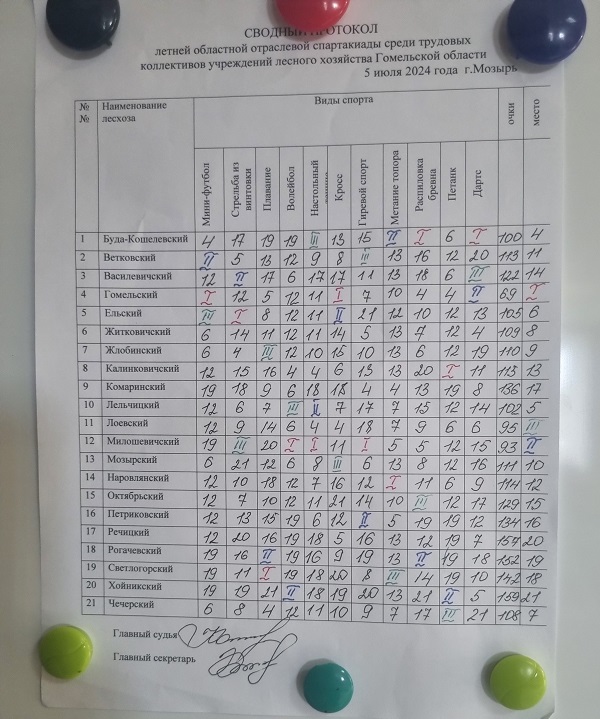 СВОДНЫЙ ПРОТОКОЛ
летней областной отраслевой спартакиады среди трудовых
коллективов учреждений лесного хозяйства Гомельской области
5 июля 2024 года г.Мозырь
№ № Наименование лесхоза Виды спорта очки место
Мини-футбол Стрельба из винтовки Плавание Волейбол Настольный Кросс Гиревой спорт Метание топора Распиловка бревна Петанк Дартс
1 Буда-Кошелевский 4 17 19 19 III 13 15 II I 6 I 100 4
2 Ветковский II 5 13 12 9 8 III 13 16 12 20 113 11
3 Василевичский 12 II 17 6 17 17 11 13 18 6 III 122 14
4 Гомельский I 12 5 12 11 I 7 10 4 4 II 69 I
5 Ельский III I 8 12 11 II 21 12 10 12 13 105 6
6 Житковичский 6 14 11 12 11 14 5 13 7 12 4 109 8
7 Жлобинский 6 4 III 12 10 15 10 13 6 12 19 110 9
8 Калинковичский 12 15 16 4 4 6 13 13 20 I 11 113 13
9 Комаринский 19 18 9 6 18 18 4 4 13 19 8 136 17
10 Лельчицкий 12 6 7 III II 7 17 7 15 12 14 102 5
11 Лоевский 12 9 14 6 4 4 18 7 9 6 6 95 III
12 Милошевичский 19 III 20 I I 11 I 5 5 12 15 93 II
13 Мозырский 6 21 12 6 8 III 6 13 8 12 16 111 10
14 Наровлянский 12 10 18 12 7 16 12 I 11 6 9 114 12
15 Октябрьский 12 7 10 12 11 21 14 10 III 12 17 129 15
16 Петриковский 12 13 15 19 6 12 II 5 19 19 12 134 16
17 Речицкий 12 20 16 19 18 5 16 13 12 19 7 157 20
18 Рогачевский 19 16 II 19 16 9 19 13 II 19 18 152 19
19 Светлогорский 19 11 I 19 18 20 8 III 14 19 10 142 18
20 Хойникский 19 19 21 II 18 19 20 13 21 II 5 159 21
21 Чечерский 6 8 4 12 11 10 9 7 17 III 21 108 7
Главный судья
Главный секретарь